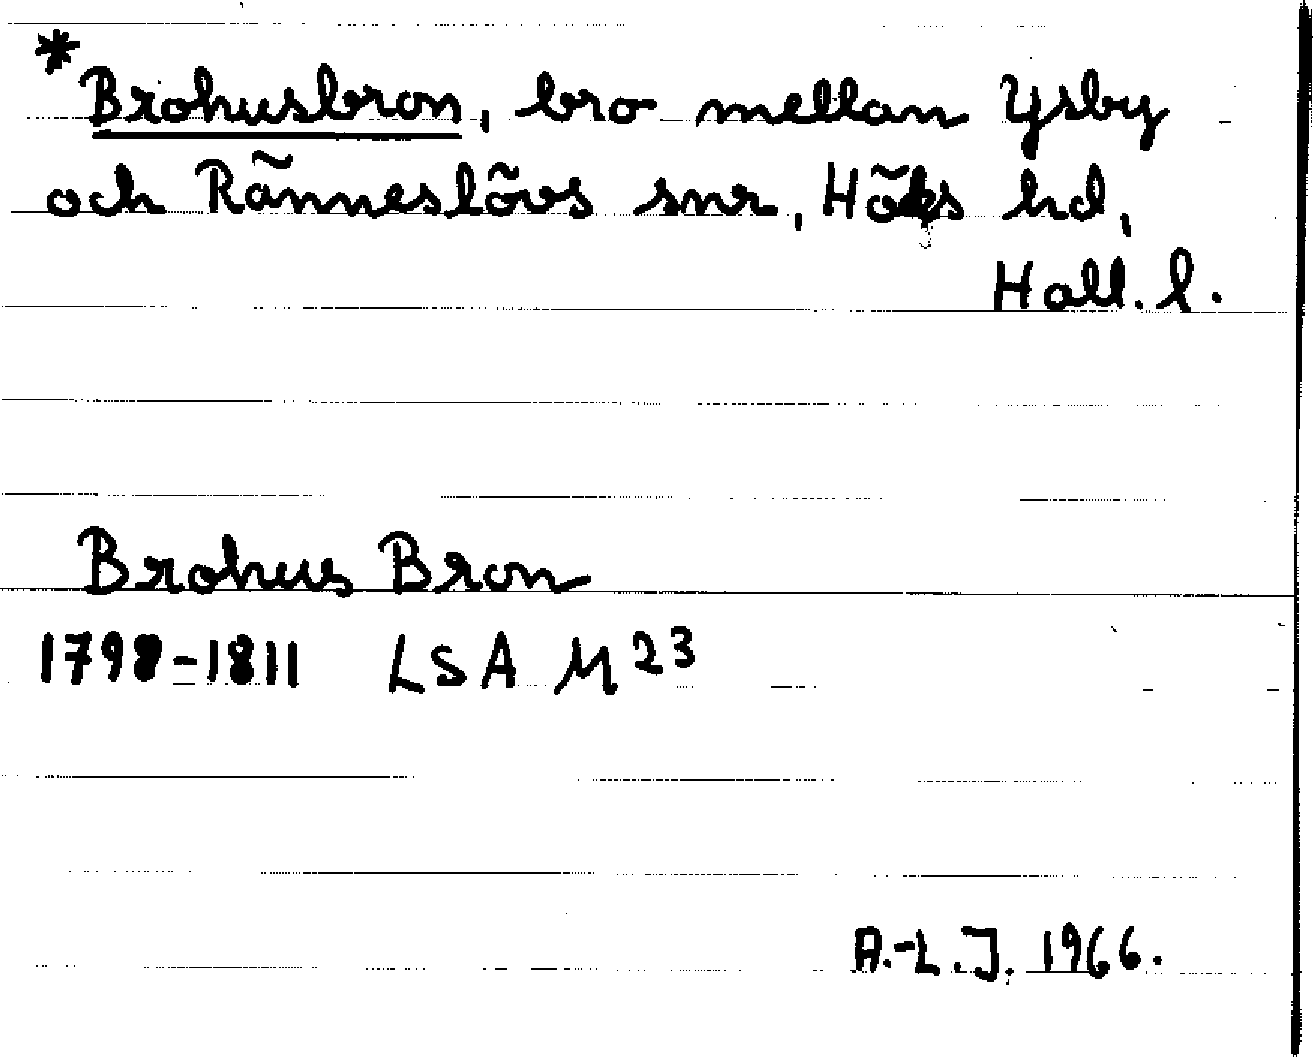 *Brohusbron, bro mellan Ysby
och Ränneslövs snr, Höks hd,
Hall. l.
Brohus Bron
1798-1811 LSA M 23
A.-L.J. 1966.